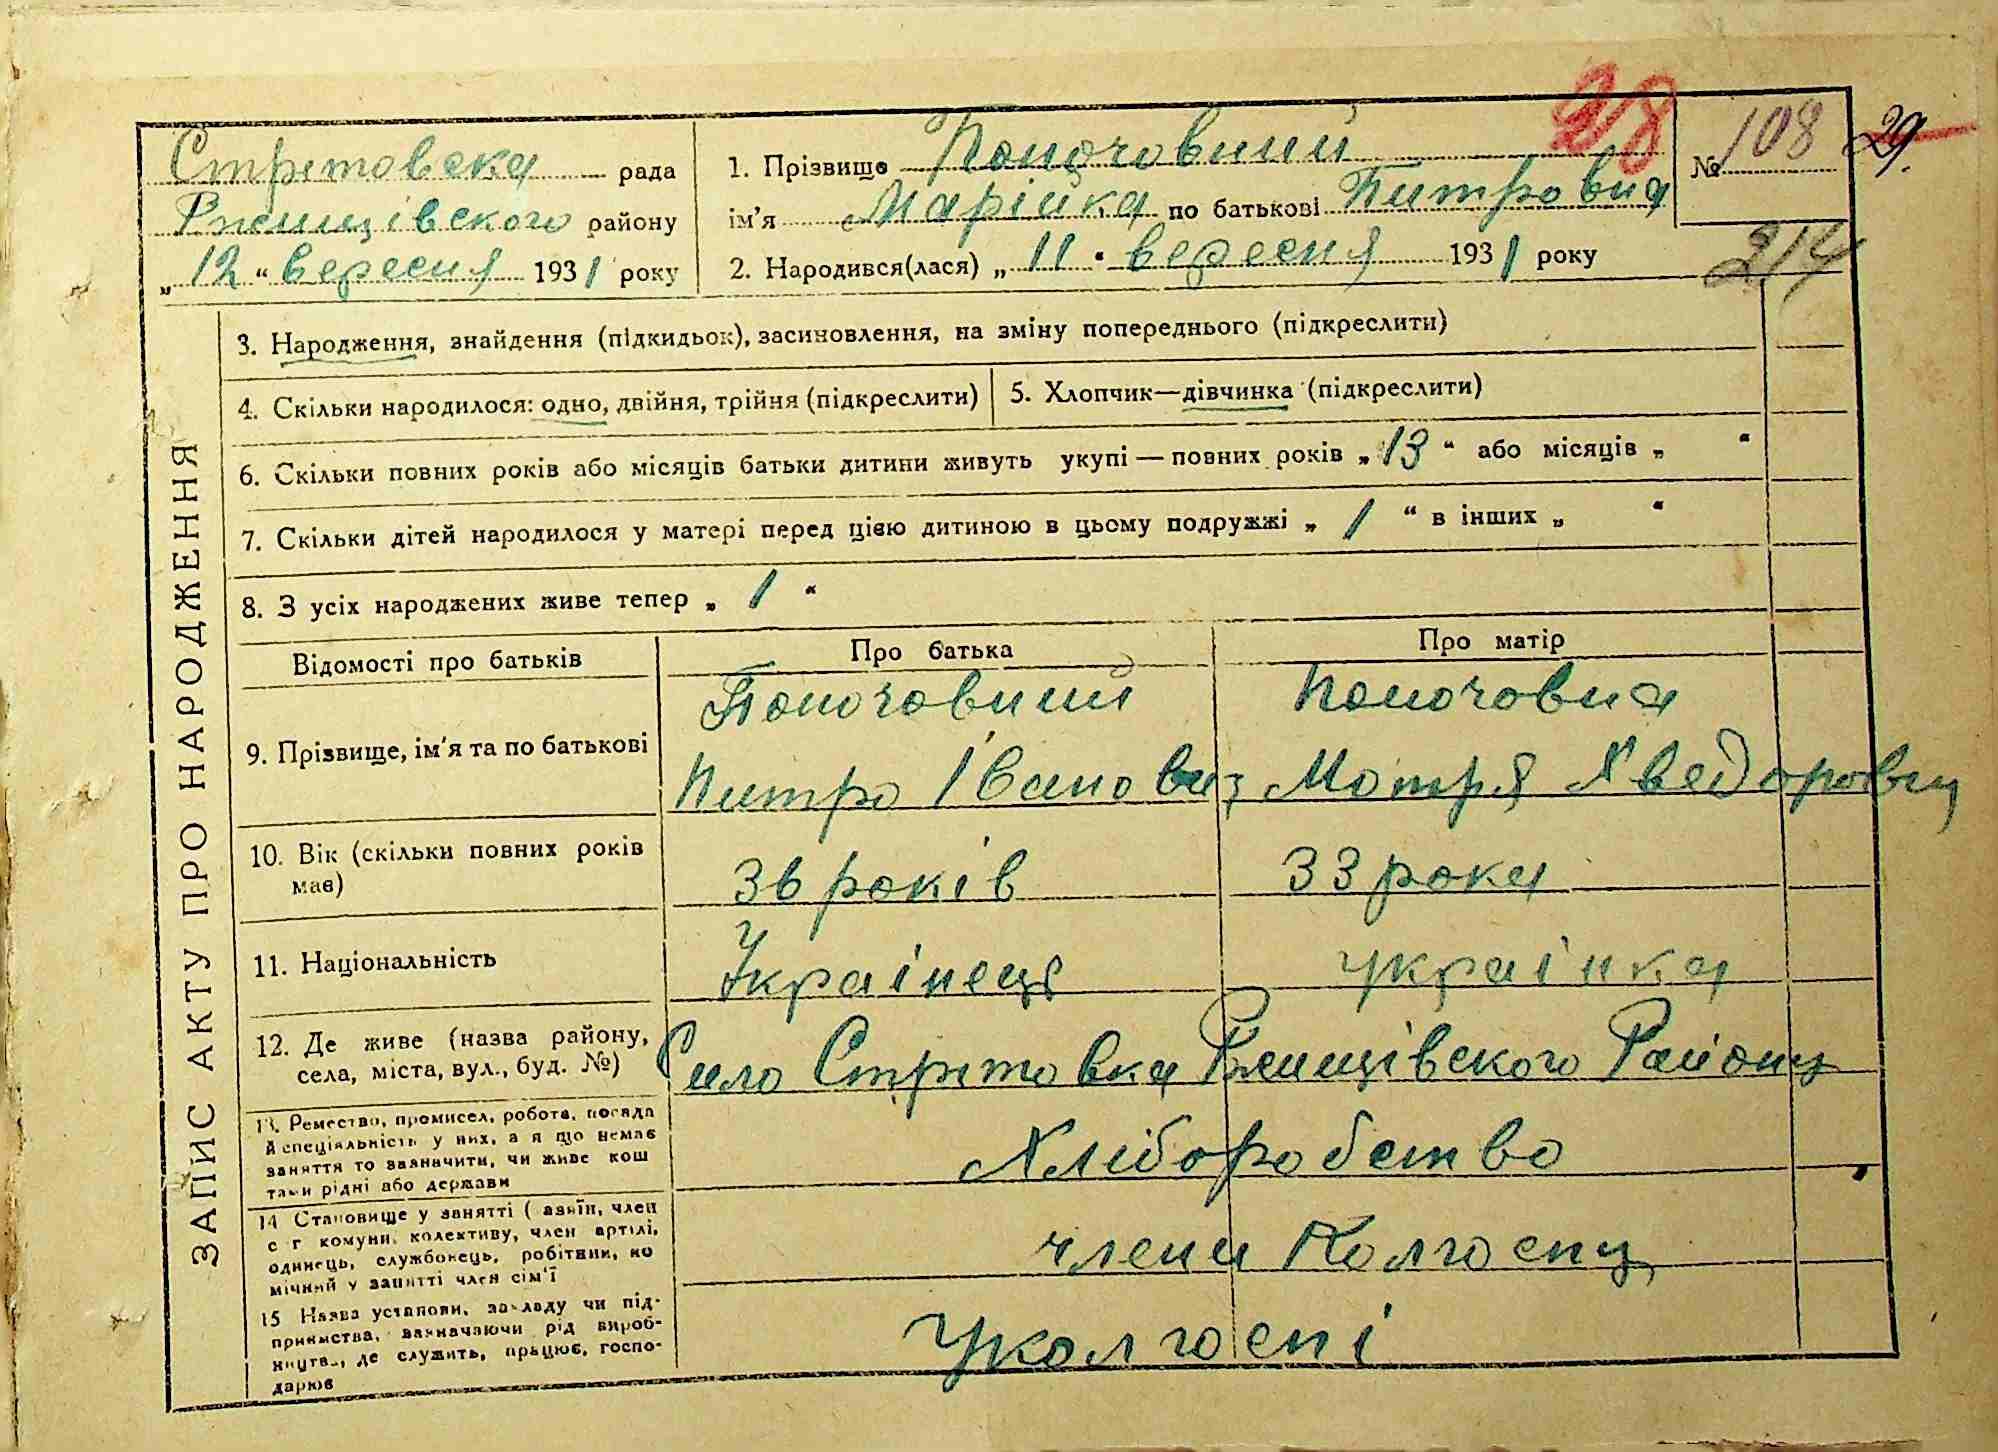 28
Стрітовска рада
Ржищівского району
„ 12 “ вересня 1931 року
1. Прізвище Помочовший
ім’я Марійка по батькові Питровна
2. Народився(лася) „ 11 “ вересня 1931 року
№ 108
29.
214
ЗАПИС АКТУ ПРО НАРОДЖЕННЯ
3. Народження, знайдення (підкидьок), засиновлення, на зміну попереднього (підкреслити)
4. Скільки народилося: одно, двійня, трійня (підкреслити)
5. Хлопчик—дівчинка (підкреслити)
6. Скільки повних років або місяців батьки дитини живуть укупі — повних років „ 13 “ або місяців „ “
7. Скільки дітей народилося у матері перед цією дитиною в цьому подружжі „ 1 “ в інших „ “
8. З усіх народжених живе тепер „ 1 “
Відомості про батьків
Про батька
Про матір
9. Прізвище, ім’я та по батькові
Питро Іванович
Мотря Хведоровна
10. Вік (скільки повних років
має)
36 років
33 рока
11. Національність
Українець
українка
12. Де живе (назва району,
села, міста, вул., буд. №)
Сило Стрітовка Ржищівского Району
13. Ремество, промисел, робота, посада
й спеціяльність у них, а я що немає
заняття то зазначити, чи живе кош
тами рідні або держави
Хліборобство
14 Становище у занятті ( азяїн, член
с г комуни, колективу, член артілі,
одинець, службовець, робітник, по
мічний у занятті член сім’ї
члени Колгоспу
15 Назва установи, закладу чи під-
приємства, зазначаючи рід вироб-
ництва, де служить, працює, госпо-
дарює
Уколгоспі